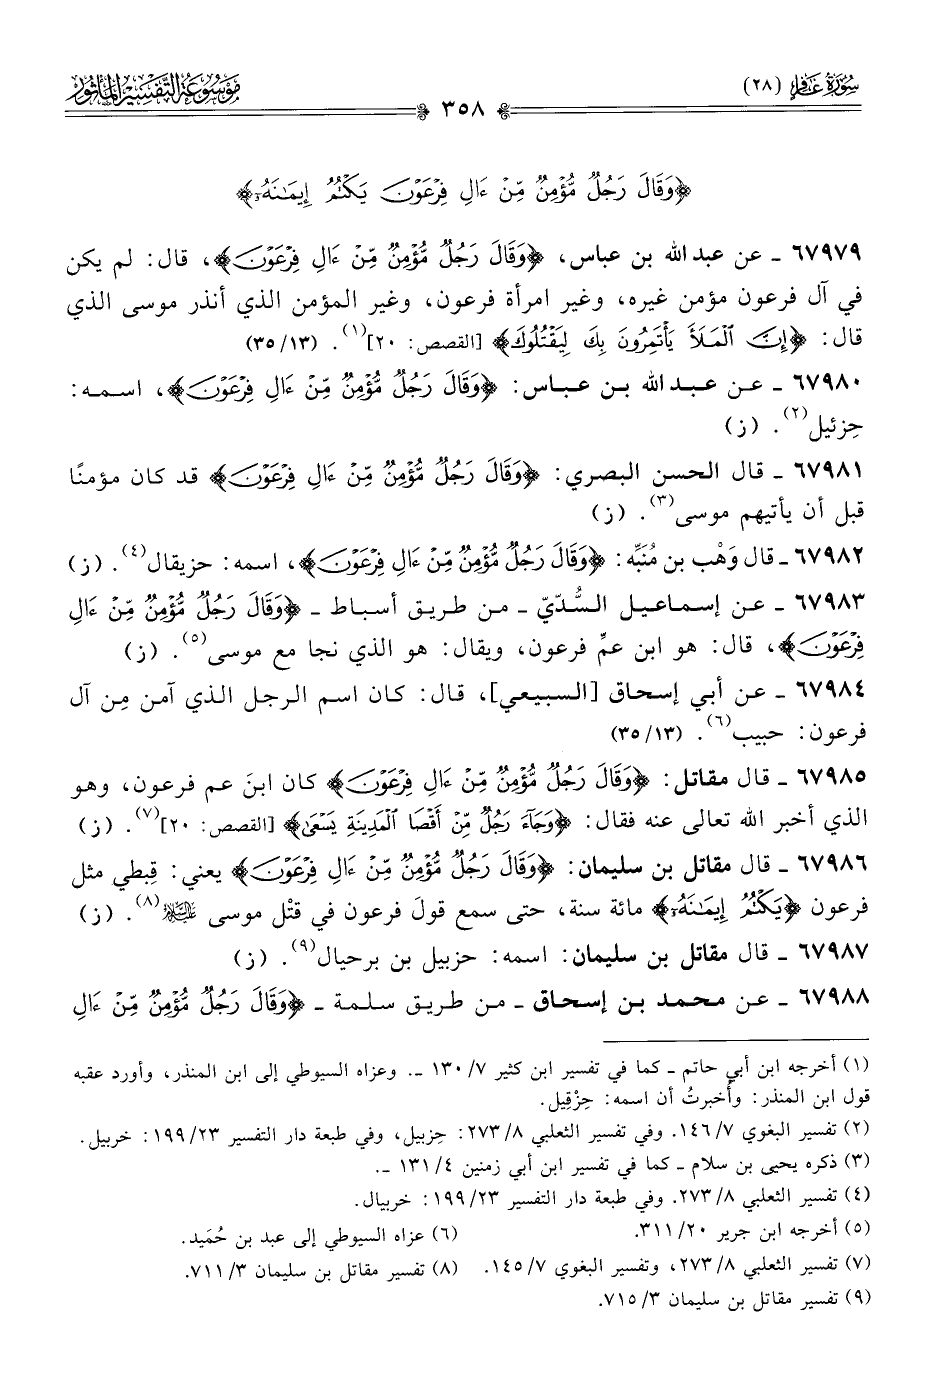 سُورَةُ غَافِرٍ (٢٨)
٣٥٨
مَوْسُوعَة التَّفْسِيرِ المَأْثُور
﴿وَقَالَ رَجُلٌ مُّؤْمِنٌ مِّنْ ءَالِ فِرْعَوْنَ يَكْتُمُ إِيمَٰنَهُۥ﴾
٦٧٩٧٩ ـ عن عبد الله بن عباس، ﴿وَقَالَ رَجُلٌ مُّؤْمِنٌ مِّنْ ءَالِ فِرْعَوْنَ﴾، قال: لم يكن
في آل فرعون مؤمن غيره، وغير امرأة فرعون، وغير المؤمن الذي أنذر موسى الذي
قال: ﴿إِنَّ ٱلْمَلَأَ يَأْتَمِرُونَ بِكَ لِيَقْتُلُوكَ﴾ [القصص: ٢٠](١). (٣٥/١٣)
٦٧٩٨٠ ـ عن عبد الله بن عباس: ﴿وَقَالَ رَجُلٌ مُّؤْمِنٌ مِّنْ ءَالِ فِرْعَوْنَ﴾، اسمه:
حِزئيل(٢). (ز)
٦٧٩٨١ ـ قال الحسن البصري: ﴿وَقَالَ رَجُلٌ مُّؤْمِنٌ مِّنْ ءَالِ فِرْعَوْنَ﴾ قد كان مؤمنًا
قبل أن يأتيهم موسى(٣). (ز)
٦٧٩٨٢ ـ قال وَهْب بن مُنَبِّه: ﴿وَقَالَ رَجُلٌ مُّؤْمِنٌ مِّنْ ءَالِ فِرْعَوْنَ﴾، اسمه: حزيقال(٤). (ز)
٦٧٩٨٣ ـ عن إسماعيل السُّدّيّ ـ من طريق أسباط ـ ﴿وَقَالَ رَجُلٌ مُّؤْمِنٌ مِّنْ ءَالِ
فِرْعَوْنَ﴾، قال: هو ابن عمِّ فرعون، ويقال: هو الذي نجا مع موسى(٥). (ز)
٦٧٩٨٤ ـ عن أبي إسحاق [السبيعي]، قال: كان اسم الرجل الذي آمن مِن آل
فرعون: حبيب(٦). (٣٥/١٣)
٦٧٩٨٥ ـ قال مقاتل: ﴿وَقَالَ رَجُلٌ مُّؤْمِنٌ مِّنْ ءَالِ فِرْعَوْنَ﴾ كان ابنَ عم فرعون، وهو
الذي أخبر الله تعالى عنه فقال: ﴿وَجَآءَ رَجُلٌ مِّنْ أَقْصَا ٱلْمَدِينَةِ يَسْعَىٰ﴾ [القصص: ٢٠](٧). (ز)
٦٧٩٨٦ ـ قال مقاتل بن سليمان: ﴿وَقَالَ رَجُلٌ مُّؤْمِنٌ مِّنْ ءَالِ فِرْعَوْنَ﴾ يعني: قِبطي مثل
فرعون ﴿يَكْتُمُ إِيمَٰنَهُۥ﴾ مائة سنة، حتى سمع قولَ فرعون في قتْل موسى عليه السلام(٨). (ز)
٦٧٩٨٧ ـ قال مقاتل بن سليمان: اسمه: حزبيل بن برحيال(٩). (ز)
٦٧٩٨٨ ـ عن محمد بن إسحاق ـ من طريق سلمة ـ ﴿وَقَالَ رَجُلٌ مُّؤْمِنٌ مِّنْ ءَالِ
(١) أخرجه ابن أبي حاتم ـ كما في تفسير ابن كثير ٧/ ١٣٠ ـ. وعزاه السيوطي إلى ابن المنذر، وأورد عقبه
قول ابن المنذر: وأُخبرتُ أن اسمه: حِزْقِيل.
(٢) تفسير البغوي ٧/ ١٤٦. وفي تفسير الثعلبي ٨/ ٢٧٣: حِزبيل، وفي طبعة دار التفسير ٢٣/ ١٩٩: خربيل.
(٣) ذكره يحيى بن سلام ـ كما في تفسير ابن أبي زمنين ٤/ ١٣١ ـ.
(٤) تفسير الثعلبي ٨/ ٢٧٣. وفي طبعة دار التفسير ٢٣/ ١٩٩: خربيال.
(٥) أخرجه ابن جرير ٢٠/ ٣١١.
(٦) عزاه السيوطي إلى عبد بن حُمَيد.
(٧) تفسير الثعلبي ٨/ ٢٧٣، وتفسير البغوي ٧/ ١٤٥.
(٨) تفسير مقاتل بن سليمان ٣/ ٧١١.
(٩) تفسير مقاتل بن سليمان ٣/ ٧١٥.